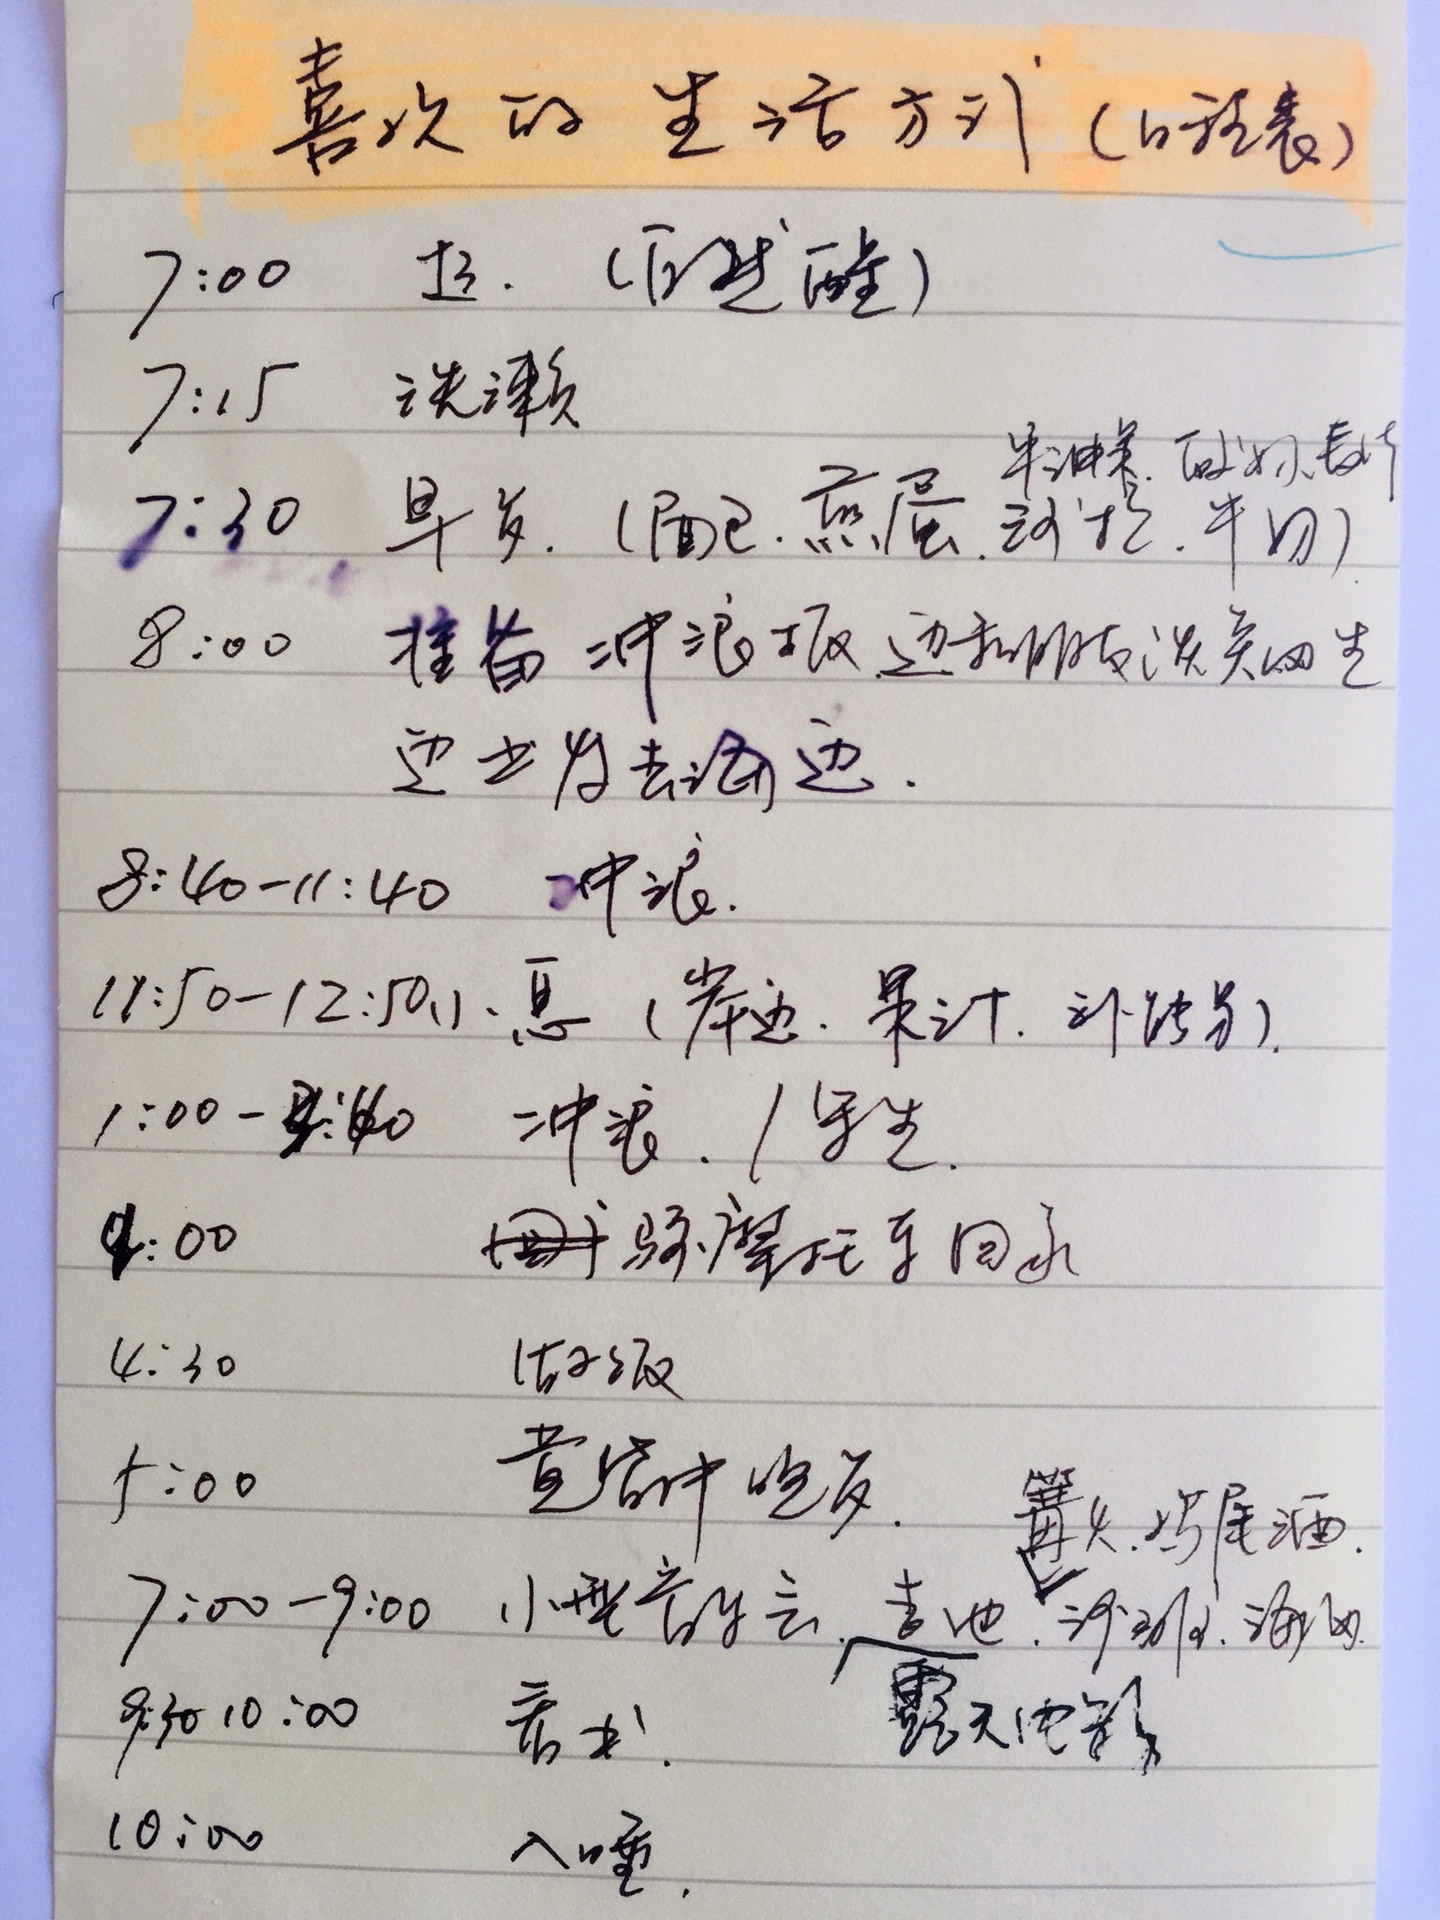 喜欢的生活方式(日程表)
7:00 起.(自然醒)
7:15 洗漱
牛油果.
7:30 早饭.(面包.煎蛋.沙拉.牛奶)
8:00 准备冲浪板 边和朋友谈笑风生
边出发去海边.
8:40-11:40 冲浪.
11:50-12:50 小息(岸边.果汁.补防晒).
1:00- 冲浪./写生.
4:00 骑摩托车回家
4:30 做饭
5:00 黄昏中吃饭.
篝火.鸡尾酒.
7:00-9:00 小型音乐会.吉他.沙滩.海风.
露天电影
9:30 10:00 看书.
10:00 入睡.